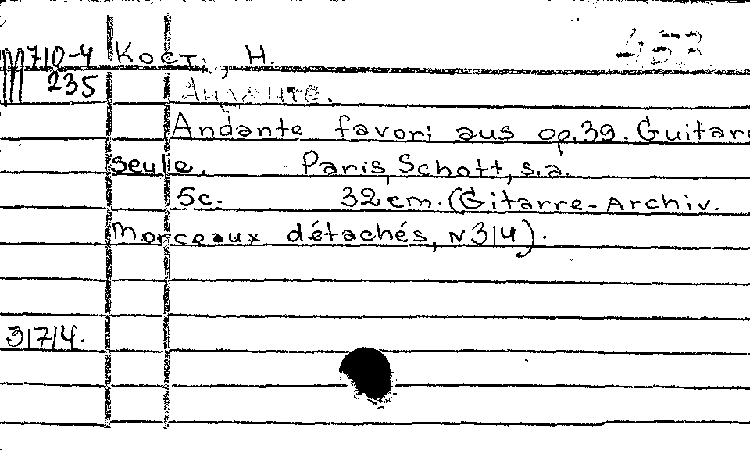 М710-4 Кост, Н.
235
Andante favori aus op.39. Guitare
seule. Paris, Schott, s.a.
5c. 32cm. (Gitarre-Archiv.
Morceaux détachés, N314).
31714.